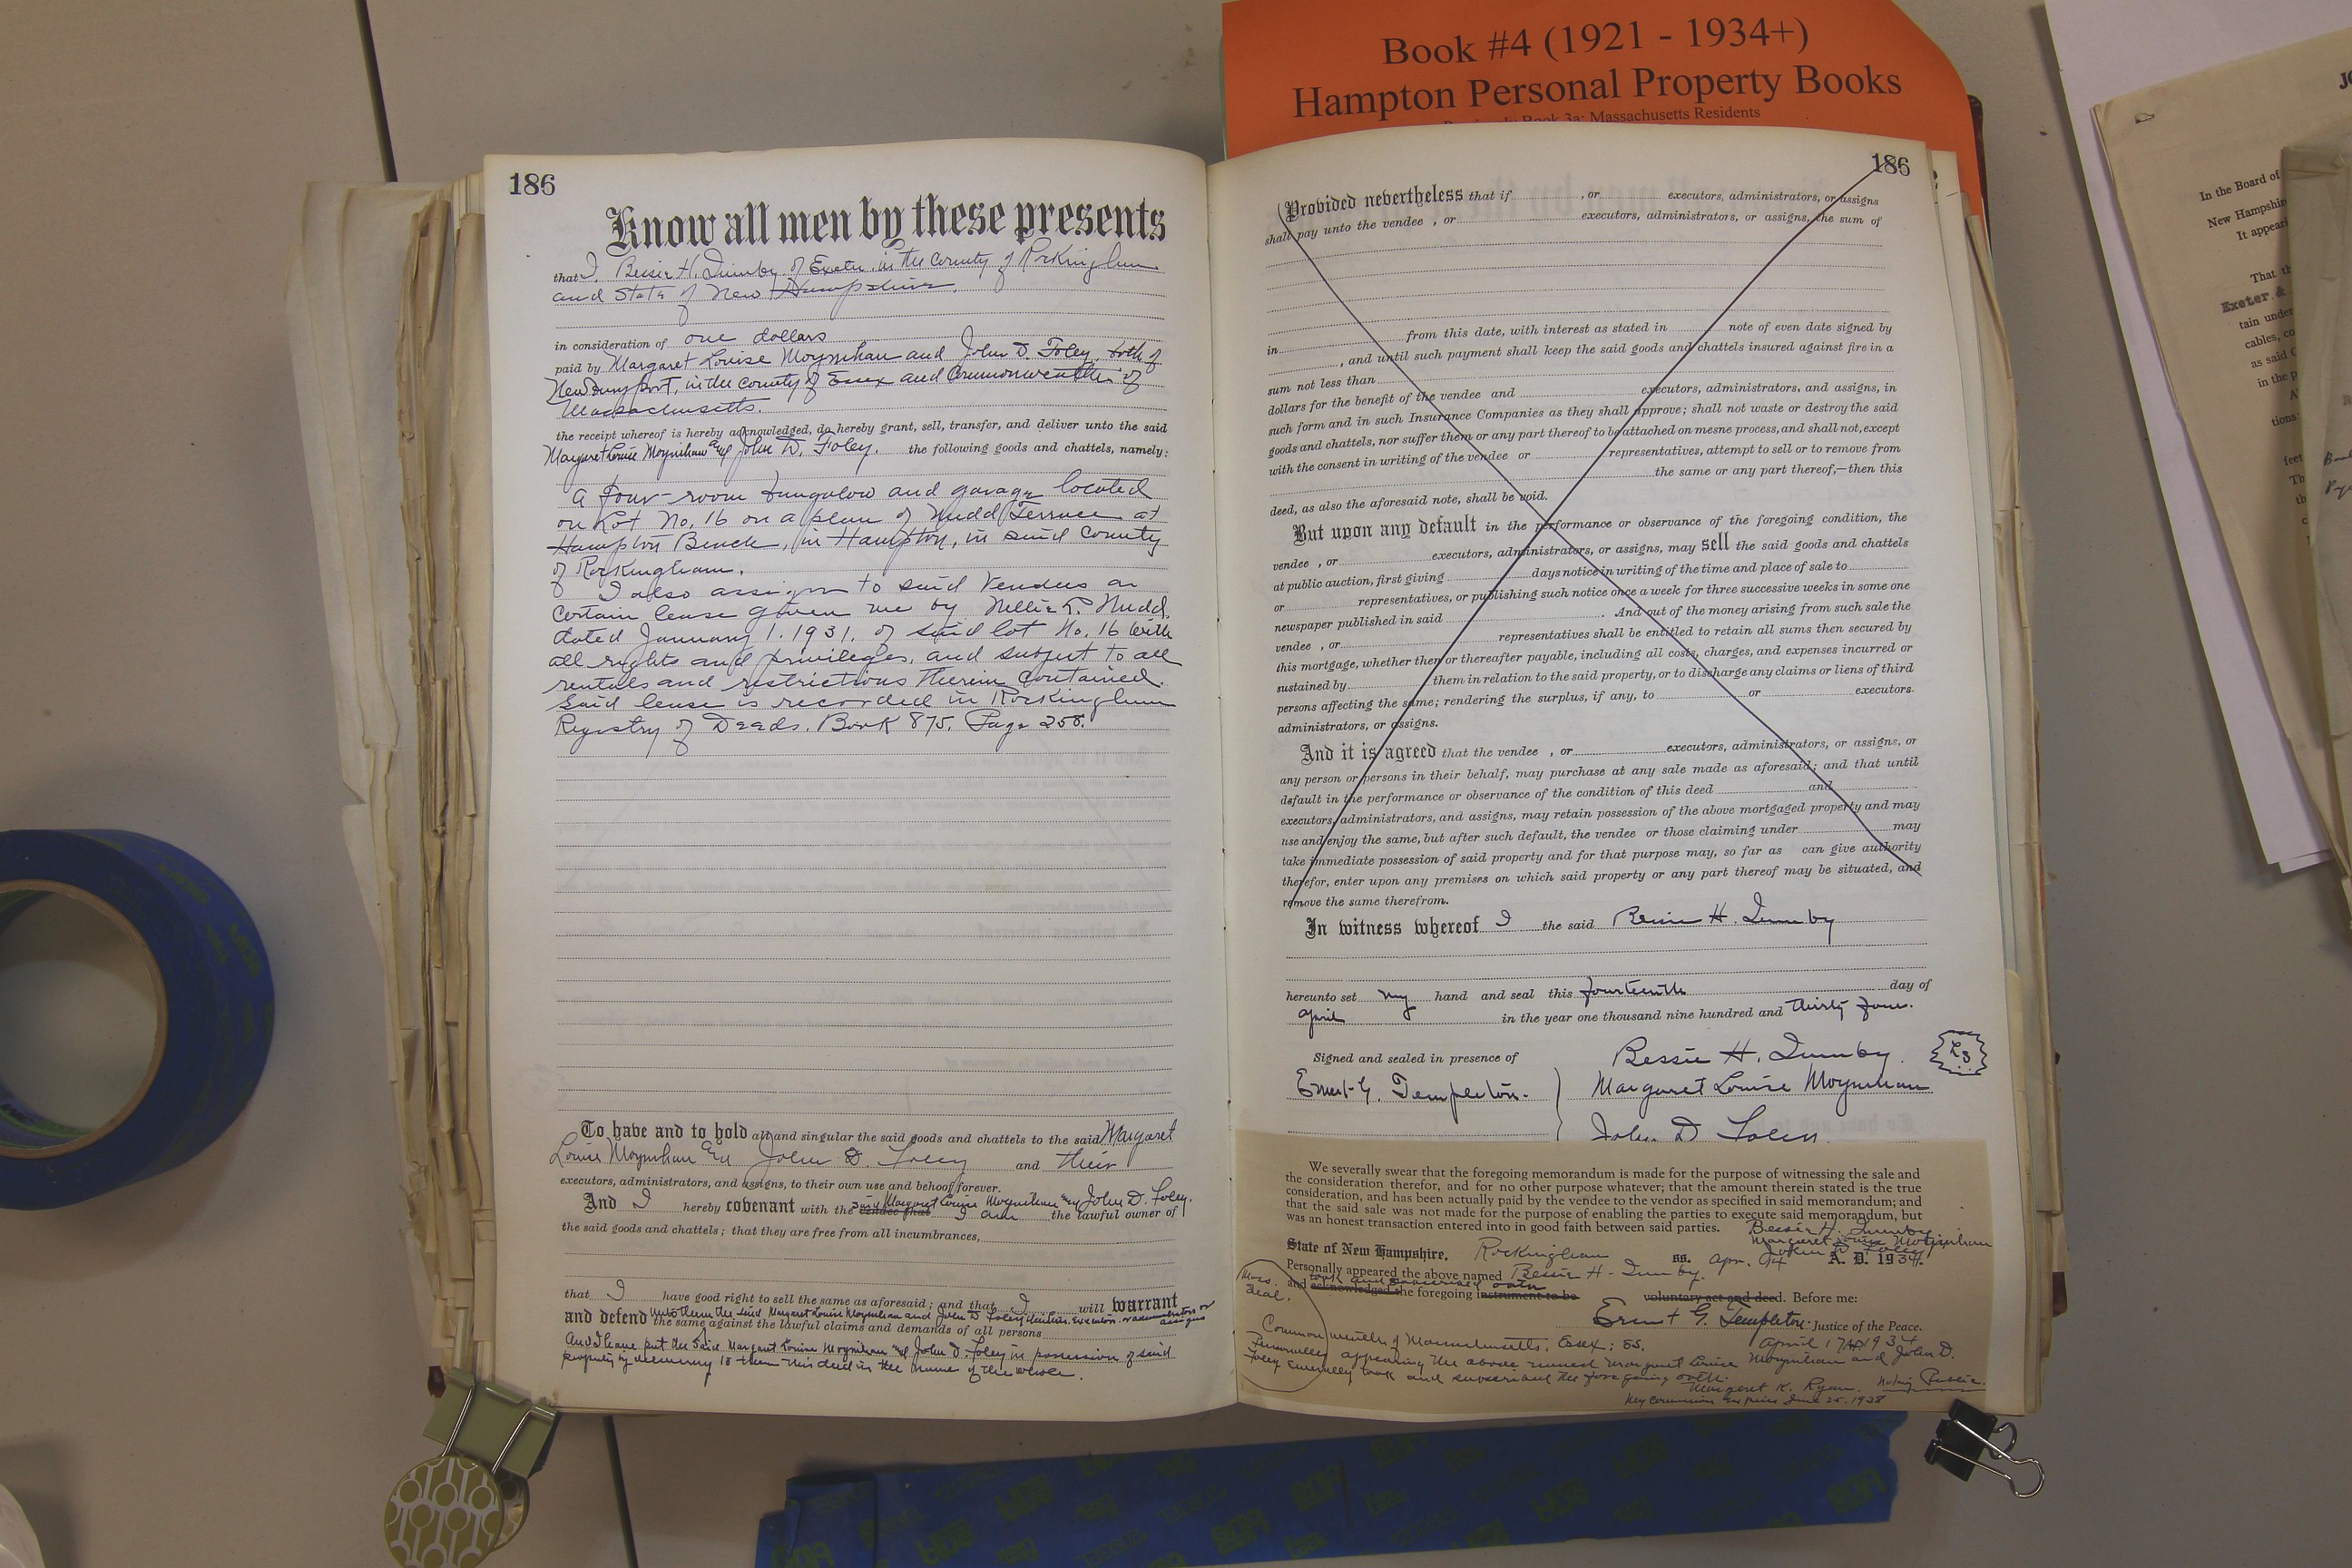 Book #4 (1921 - 1934+)
Hampton Personal Property Books
Book 3a: Massachusetts Residents
186
Know all men by these presents
that I, Bessie H. of Exeter in the County of Rockingham
and State of New Hampshire.
in consideration of one dollars
paid by Margaret Louise Moynihan and John D. Foley, both of
Newburyport, in the county of Essex and Commonwealth of
Massachusetts.
the receipt whereof is hereby acknowledged, do hereby grant, sell, transfer, and deliver unto the said
Margaret Louise Moynihan and John D. Foley. the following goods and chattels, namely:
A four-room bungalow and garage located
on Lot No. 16 on a plan of Nudd Terrace at
Hampton Beach, in Hampton, in said County
of Rockingham.
I also assign to said Vendees a
certain lease given me by Nellie Nudd
dated January 1. 1931. of said lot No. 16 with
all rights and privileges, and subject to all
rentals and restrictions therein contained.
Said lease is recorded in Rockingham
Registry of Deeds. Book 875. Page 258.
To have and to hold all and singular the said goods and chattels to the said Margaret
Louise Moynihan and John D. Foley and their
executors, administrators, and assigns, to their own use and behoof forever.
And I hereby covenant with the said Margaret Louise Moynihan and John D. Foley.
vendee that I am the lawful owner of
the said goods and chattels; that they are free from all incumbrances,
that I have good right to sell the same as aforesaid; and that I will warrant
and defend unto them the said Margaret Louise Moynihan and John D Foley their executors administrators or assigns
the same against the lawful claims and demands of all persons
And I have put the said Margaret Louise Moynihan and John D. Foley in possession of said
property by delivering to them this deed in the name of the whole.
186
Provided nevertheless that if , or executors, administrators, or assigns
shall pay unto the vendee , or executors, administrators, or assigns, the sum of
in from this date, with interest as stated in note of even date signed by
, and until such payment shall keep the said goods and chattels insured against fire in a
sum not less than
dollars for the benefit of the vendee and executors, administrators, and assigns, in
such form and in such Insurance Companies as they shall approve; shall not waste or destroy the said
goods and chattels, nor suffer them or any part thereof to be attached on mesne process, and shall not, except
with the consent in writing of the vendee or representatives, attempt to sell or to remove from
the same or any part thereof,—then this
deed, as also the aforesaid note, shall be void.
But upon any default in the performance or observance of the foregoing condition, the
vendee , or executors, administrators, or assigns, may sell the said goods and chattels
at public auction, first giving days notice in writing of the time and place of sale to
or representatives, or publishing such notice once a week for three successive weeks in some one
newspaper published in said . And out of the money arising from such sale the
vendee , or representatives shall be entitled to retain all sums then secured by
this mortgage, whether then or thereafter payable, including all costs, charges, and expenses incurred or
sustained by them in relation to the said property, or to discharge any claims or liens of third
persons affecting the same; rendering the surplus, if any, to or executors.
administrators, or assigns.
And it is agreed that the vendee , or executors, administrators, or assigns, or
any person or persons in their behalf, may purchase at any sale made as aforesaid; and that until
default in the performance or observance of the condition of this deed and
executors, administrators, and assigns, may retain possession of the above mortgaged property and may
use and enjoy the same, but after such default, the vendee or those claiming under may
take immediate possession of said property and for that purpose may, so far as can give authority
therefor, enter upon any premises on which said property or any part thereof may be situated, and
remove the same therefrom.
In witness whereof I the said Bessie H.
hereunto set my hand and seal this fourteenth day of
April in the year one thousand nine hundred and thirty four.
Signed and sealed in presence of
Ernest G. Templeton.
Bessie H.
Margaret Louise Moynihan
John D Foley
We severally swear that the foregoing memorandum is made for the purpose of witnessing the sale and
the consideration therefor, and for no other purpose whatever; that the amount therein stated is the true
consideration, and has been actually paid by the vendee to the vendor as specified in said memorandum; and
that the said sale was not made for the purpose of enabling the parties to execute said memorandum, but
was an honest transaction entered into in good faith between said parties. Bessie H.
Margaret Louise Moynihan
John D Foley
State of New Hampshire, Rockingham ss. Apr. 14 A. D. 1934.
Personally appeared the above named Bessie H.
took and subscribed oath
and acknowledged the foregoing instrument to be voluntary act and deed. Before me:
Ernest G. Templeton Justice of the Peace.
Mass. Seal.
Commonwealth of Massachusetts, Essex; SS. April 17 1934
Personally appearing the above named Margaret Louise Moynihan and John D.
Foley severally took and subscribed the foregoing oath.
Margaret K. Ryan. Notary Public.
My commission expires June 25. 1938
In the Board of
New Hampshire
It appeari
That th
Exeter &
tain under
cables, co
as said C
in the p
tions
feet